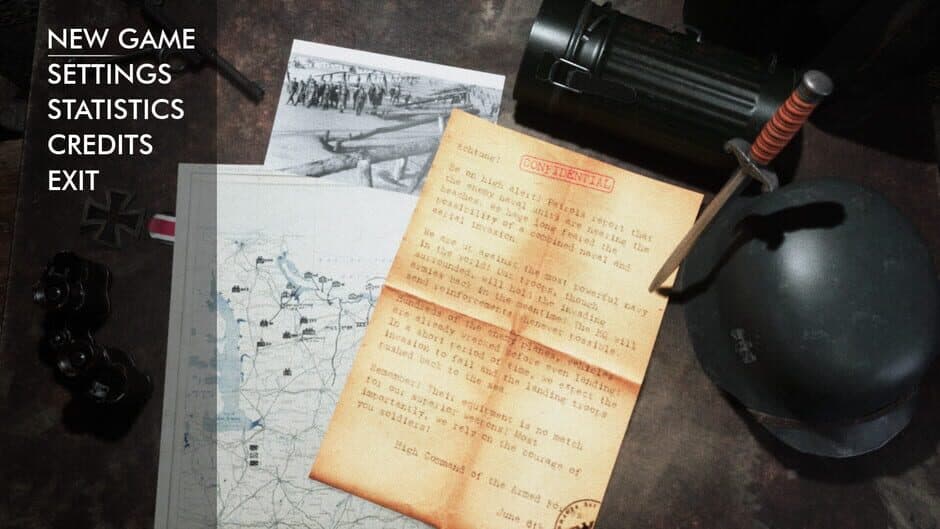 NEW GAME
SETTINGS
STATISTICS
CREDITS
EXIT
Achtung!
CONFIDENTIAL
Be on high alert! Patrols report that
the enemy naval units are nearing the
beaches. We have long feared the
possibility of a combined naval and
aerial invasion
We are up against the most powerful navy
in the world! Our troops, though
surrounded, will hold the invading
armies back in the meantime. The HQ will
send reinforcements whenever possible.
Hundreds of the enemy planes, vehicles
are already wrecked before even landing!
in a short period of time, we expect the
invasion to fail and the landing troops
pushed back to the sea
Remember! Their equipment is no match
for our superior weapons! Most
importantly, we rely on the courage of
you soldiers!
High Command of the Armed
June 6th